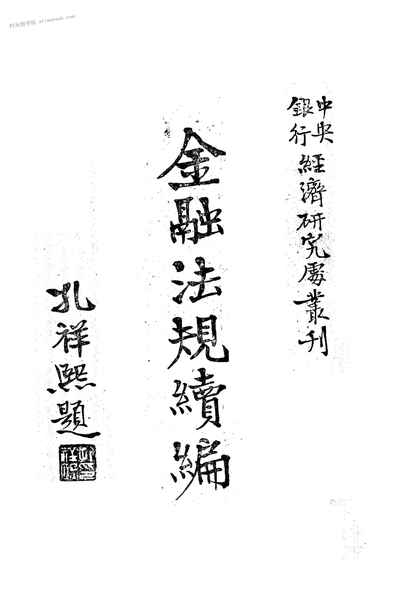 中央
銀行
經濟研究處叢刊
金融法規續編
孔祥熙題